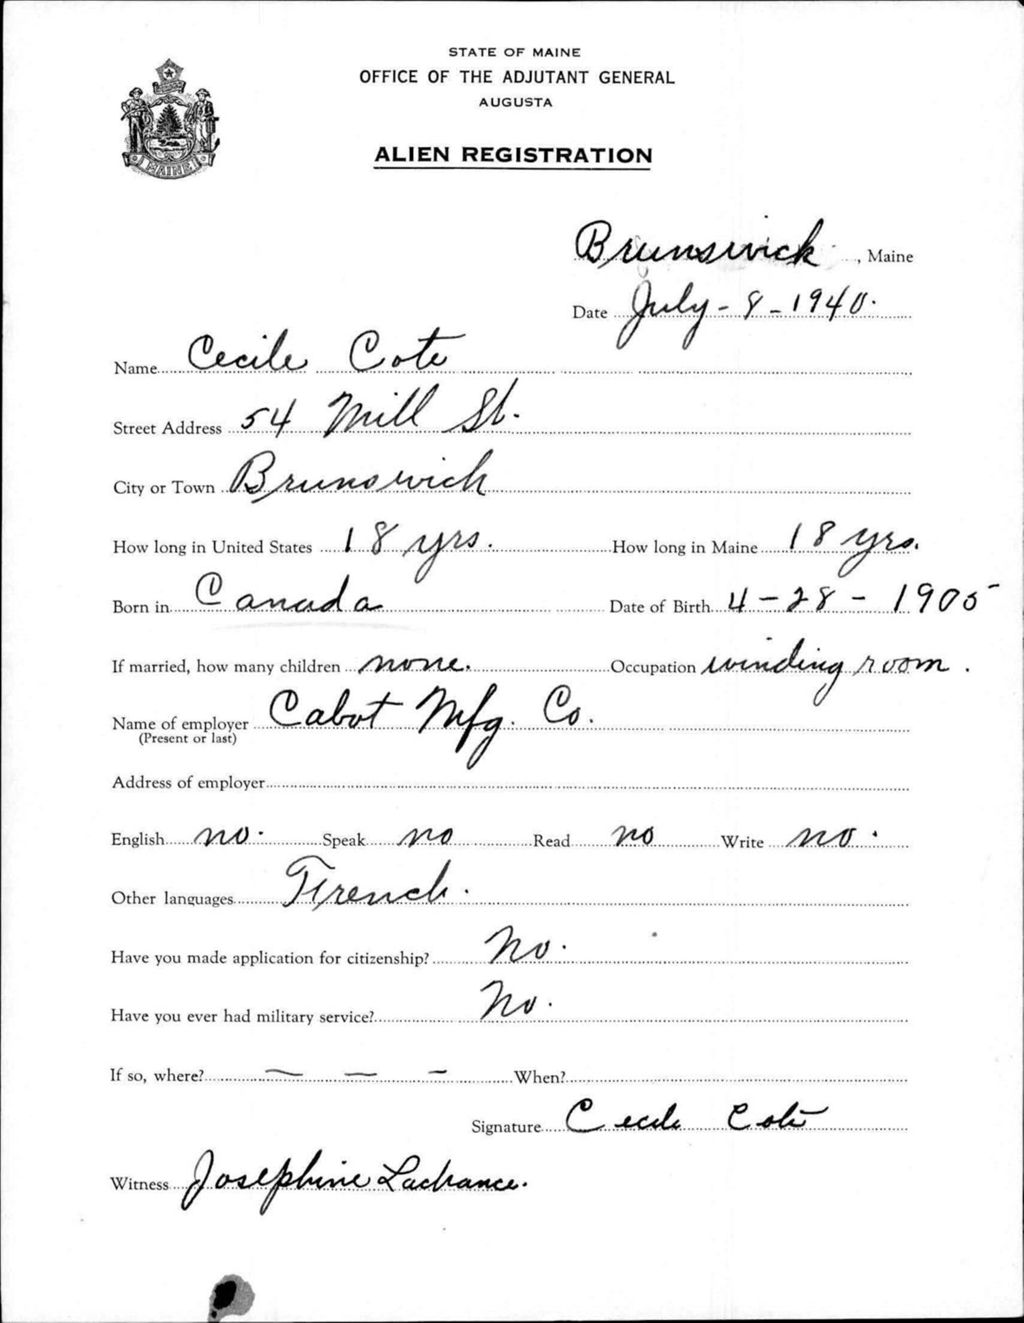 STATE OF MAINE
OFFICE OF THE ADJUTANT GENERAL
AUGUSTA
ALIEN REGISTRATION
MAINE
Brunswick, Maine
Date July - 8 - 1940.
Name Cecile Cote
Street Address 54 Mill St.
City or Town Brunswick
How long in United States 18 yrs. How long in Maine 18 yrs.
Born in Canada Date of Birth 4 - 28 - 1905
If married, how many children none. Occupation winding room.
Name of employer Cabot Mfg. Co.
(Present or last)
Address of employer
English no. Speak no Read no Write no.
Other languages French.
Have you made application for citizenship? No.
Have you ever had military service? No.
If so, where? — — — When?
Signature Cecile Cote
Witness Josephine Lachance.